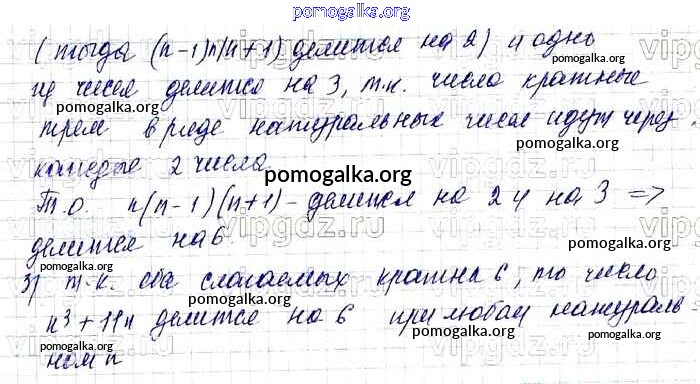 pomogalka.org
(тогда (n-1)n(n+1) делится на 2) и одно
из чисел делится на 3, т.к. число кратные
pomogalka.org pomogalka.org
трем в ряде натуральных чисел идут через
pomogalka.org
каждые 2 числа
pomogalka.org
Т.о. n(n-1)(n+1) - делится на 2 и на 3 =>
vipgdz.ru
делится на 6. pomogalka.org
3) т.к. оба слагаемых кратна 6, то число
pomogalka.org
n³+11n делится на 6 при любом натураль-
pomogalka.org pomogalka.org
ном n